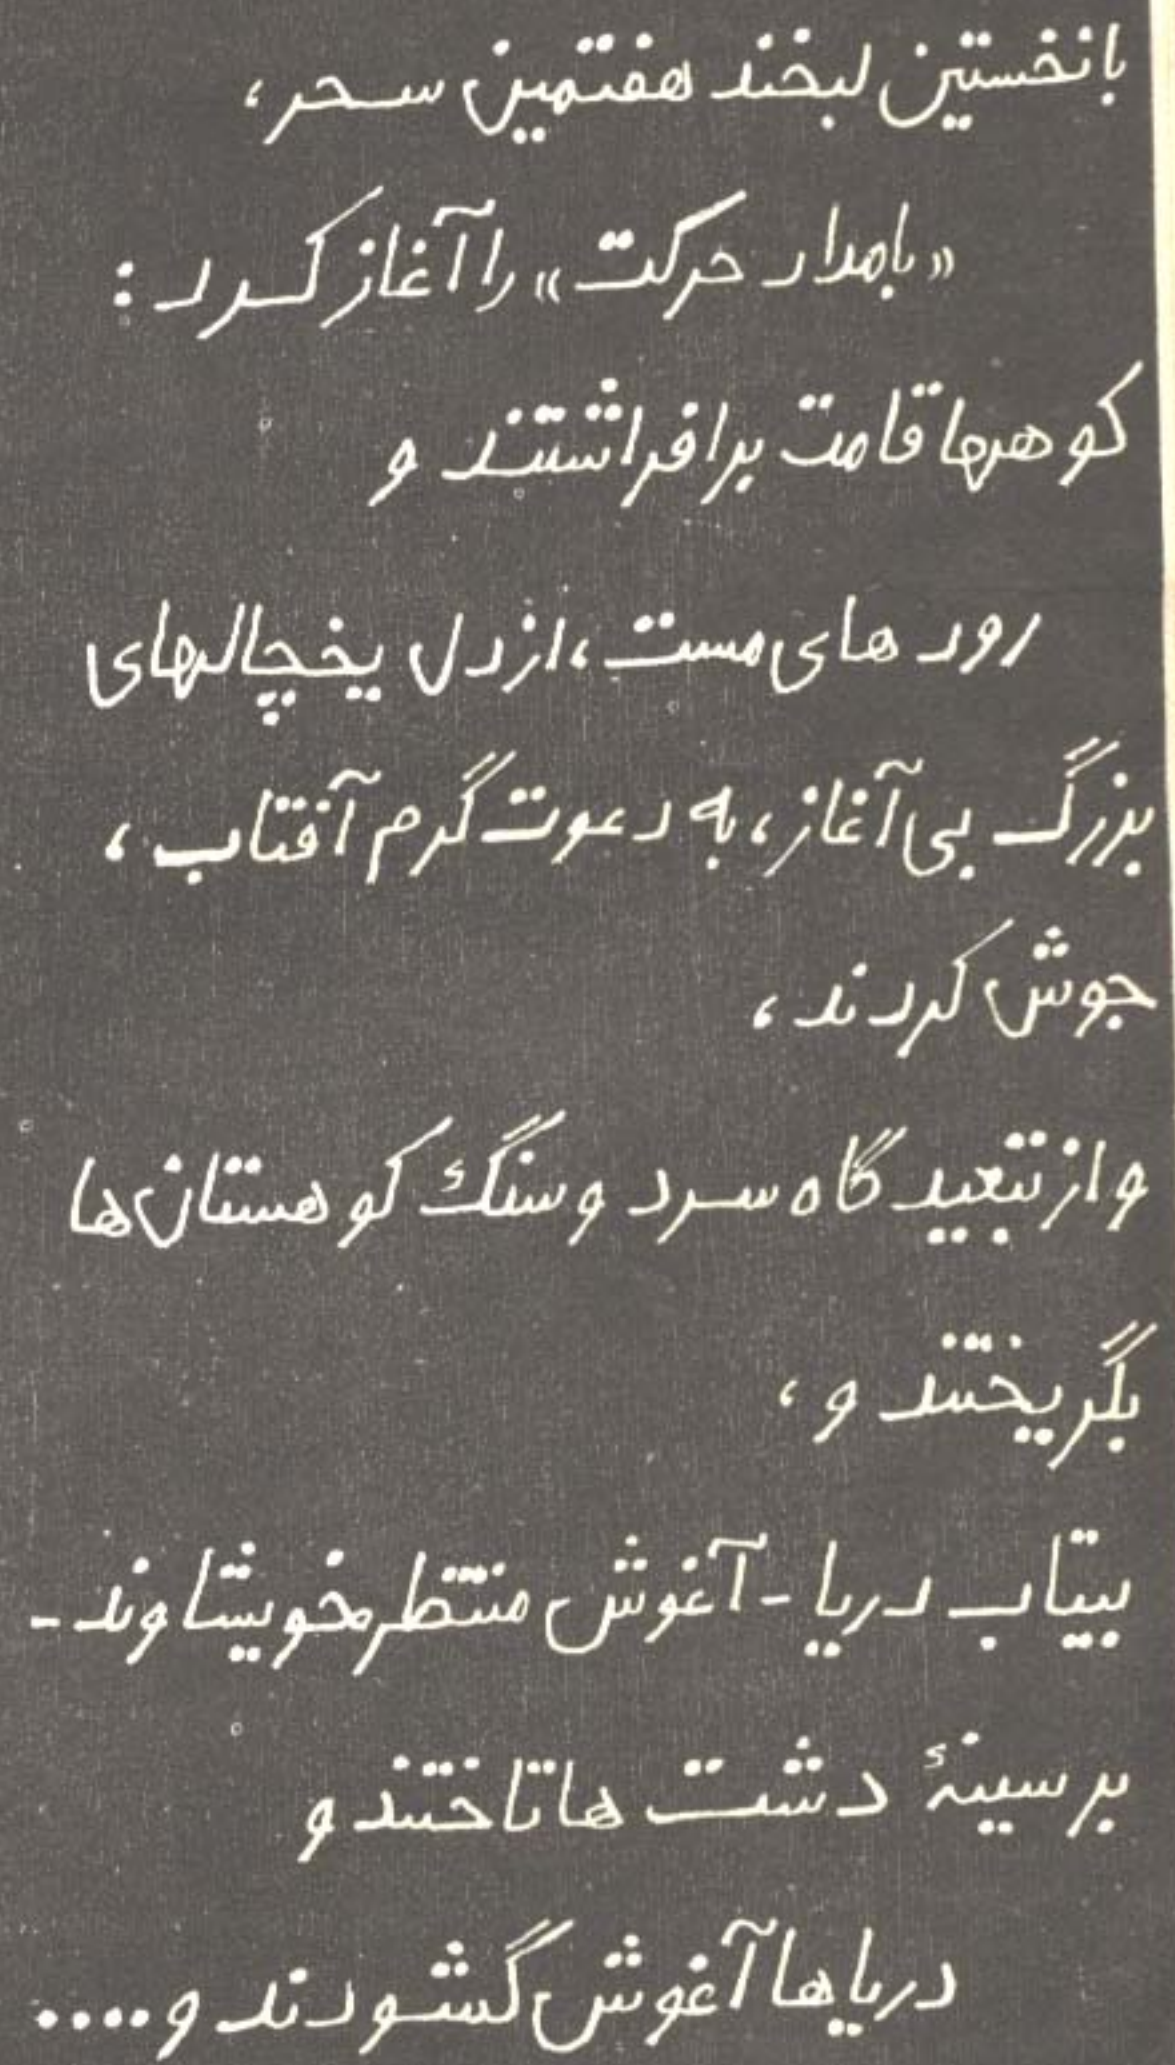 با نخستین لبخند هفتمین سحر،
«بامداد حرکت» را آغاز کرد:
کوهها قامت برافراشتند و
رود های مست، از دل یخچالهای
بزرگ بی آغاز، به دعوت گرم آفتاب،
جوش کردند،
و از تبعید گاه سرد و سنگ کوهستان ها
بگریختند و،
بیتاب دریا - آغوش منتظر خویشاوند -
بر سینهٔ دشت ها تاختند و
دریاها آغوش گشودند و....